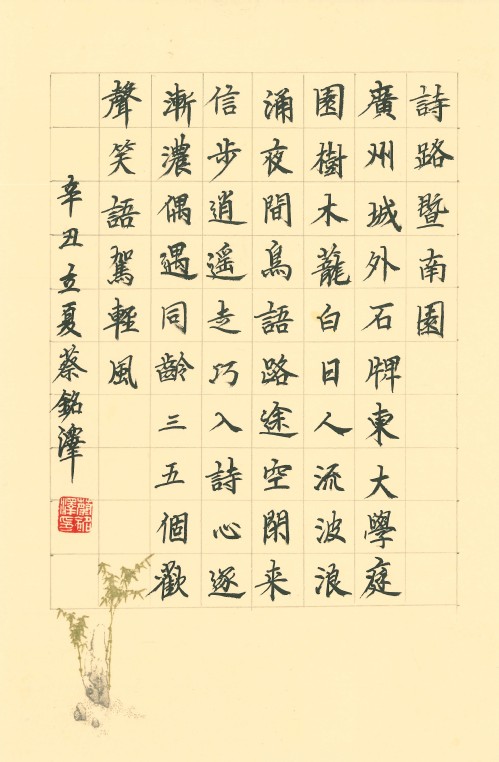 詩路暨南園
廣州城外石牌東大學庭
園樹木蘢白日人流波浪
涌夜間鳥語路途空閑来
信步逍遥走巧入詩心逐
漸濃偶遇同齡三五個歡
聲笑語駕輕風
辛丑立夏蔡銘澤